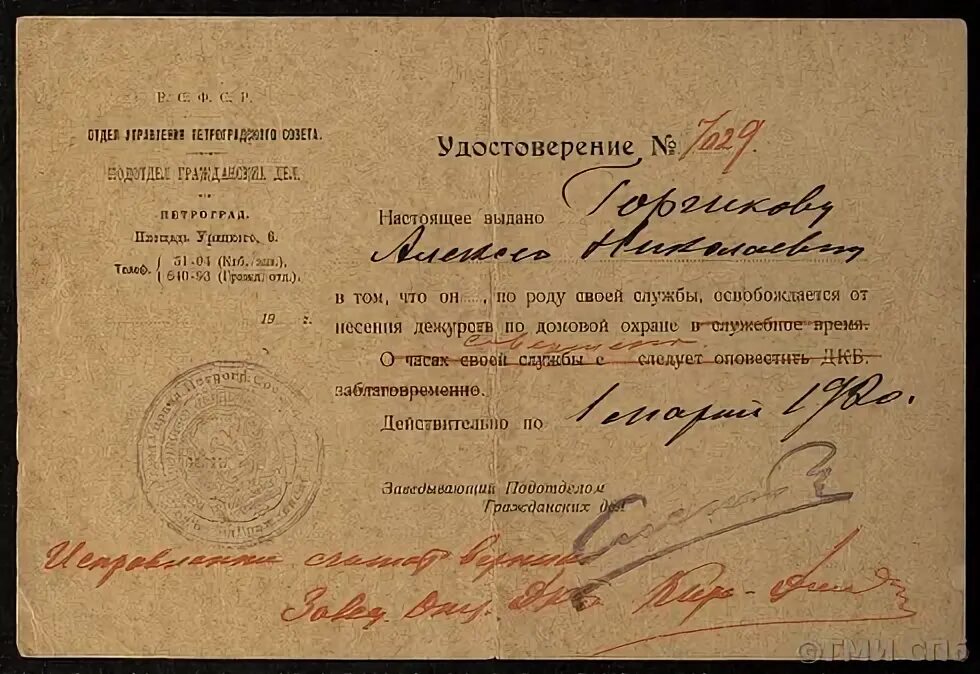 Р. С. Ф. С. Р.
ОТДЕЛ УПРАВЛЕНИЯ ПЕТРОГРАДСКОГО СОВЕТА.
ПОДОТДЕЛ ГРАЖДАНСКИХ ДЕЛ.
ПЕТРОГРАД.
Площадь Урицкого, 6.
Телеф.
19 г.
Удостоверение № 7029.
Настоящее выдано Горчикову
Алексею Николаевичу
в том, что он , по роду своей службы, освобождается от
несения дежурств по домовой охране в служебное время.
совершенно.
О часах своей службы с следует оповестить ДКБ.
заблаговременно.
Действительно по 1 марта 1920.
Заведывающий Подотделом
Гражданских дел
Исправления считать верными
Завед. ДКБ
©ГМИ СПб